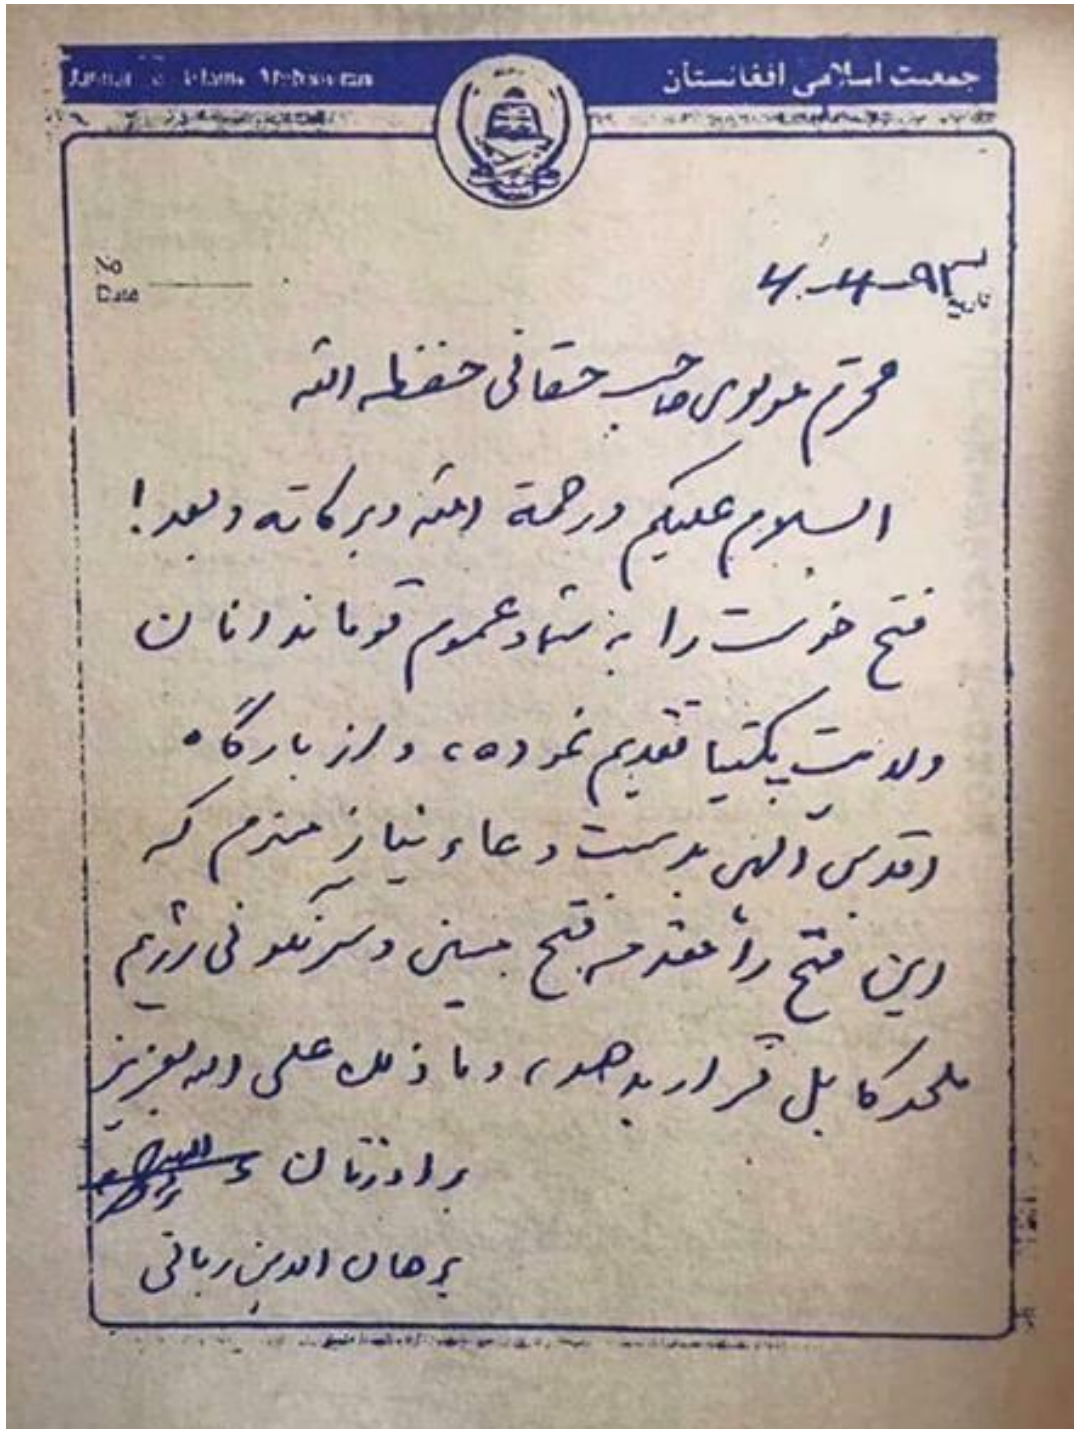 جمعیت اسلامی افغانستان
محترم مولوی صاحب حقانی حفظه الله
السلام علیکم ورحمة الله وبرکاته وبعد!
فتح خوست را به شما وعموم قوماندانان
ولایت پکتیا تقدیم نموده، واز بارگاه
اقدس الهی بدست دعاء نیازمندم که
این فتح را مقدمه فتح مبین وسرنگونی رژیم
ملحد کابل قرار بدهد، وما ذلک علی الله بعزیز
برادرتان
برهان الدین ربانی